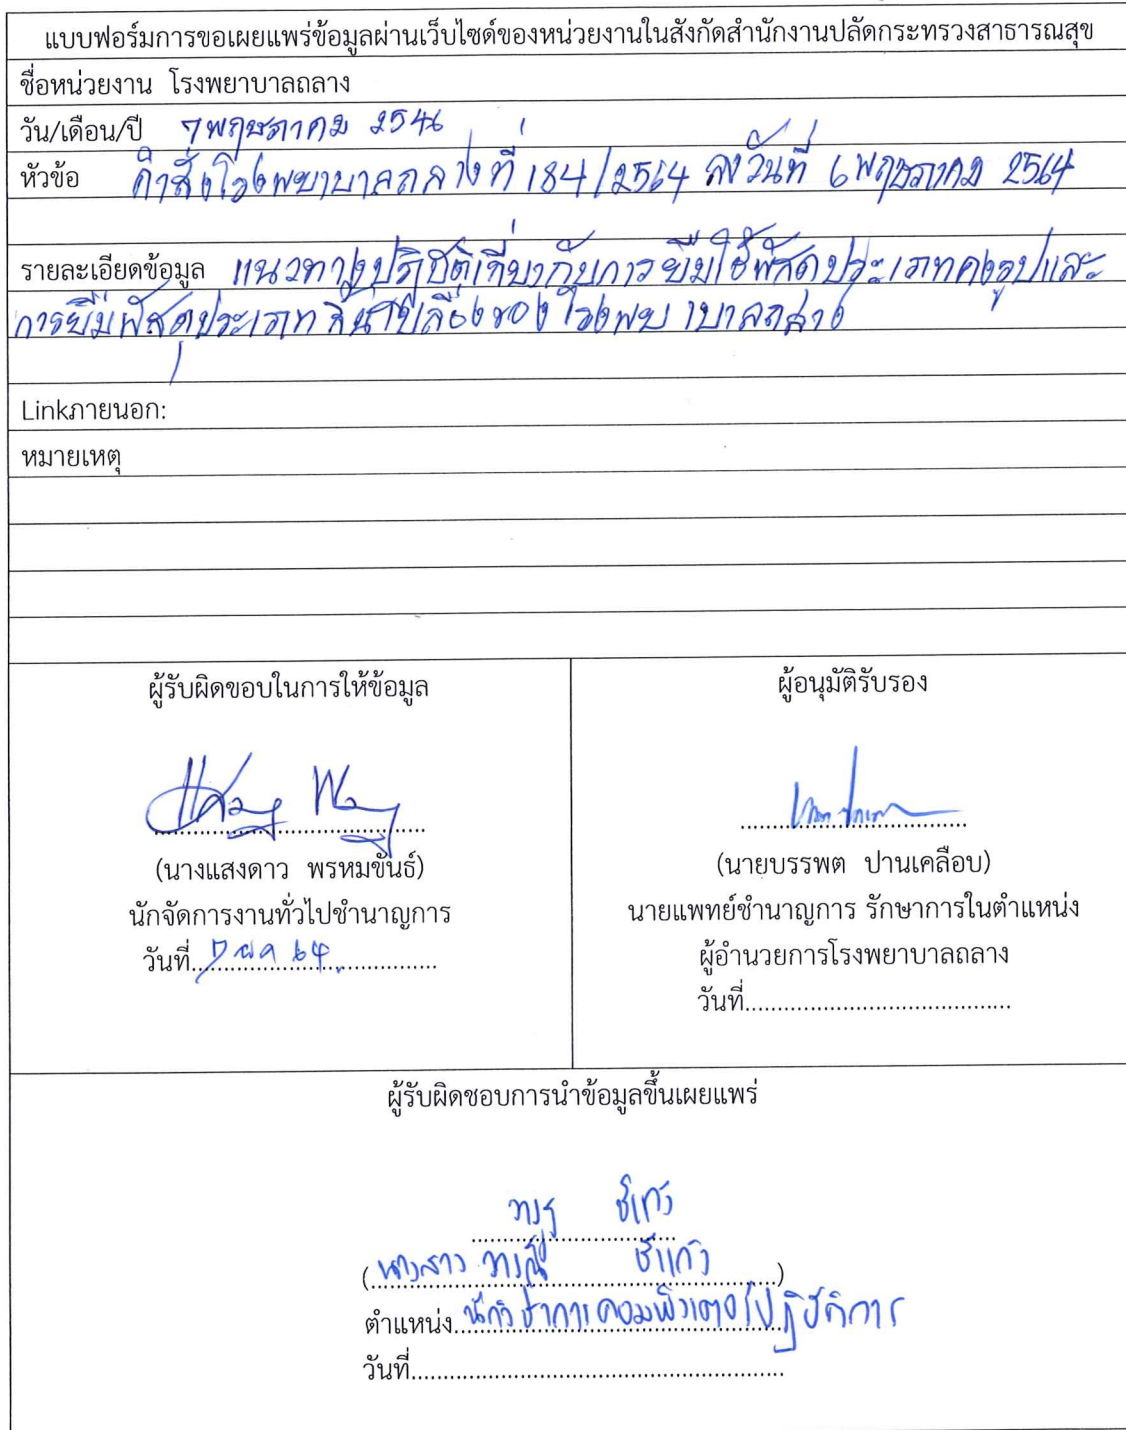 แบบฟอร์มการขอเผยแพร่ข้อมูลผ่านเว็บไซต์ของหน่วยงานในสังกัดสำนักงานปลัดกระทรวงสาธารณสุข
ชื่อหน่วยงาน โรงพยาบาลถลาง
วัน/เดือน/ปี 7 พฤษภาคม 2546
หัวข้อ คำสั่งโรงพยาบาลถลางที่ 184/2564 ลงวันที่ 6 พฤษภาคม 2564
รายละเอียดข้อมูล แนวทางปฏิบัติเกี่ยวกับการยืมใช้พัสดุประเภทคงรูปและ
การยืมพัสดุประเภทสิ้นเปลืองของโรงพยาบาลถลาง
Linkภายนอก:
หมายเหตุ
ผู้รับผิดขอบในการให้ข้อมูล
(นางแสงดาว พรหมขันธ์)
นักจัดการงานทั่วไปชำนาญการ
วันที่ 7 พค 64
ผู้อนุมัติรับรอง
(นายบรรพต ปานเคลือบ)
นายแพทย์ชำนาญการ รักษาการในตำแหน่ง
ผู้อำนวยการโรงพยาบาลถลาง
วันที่........................................
ผู้รับผิดชอบการนำข้อมูลขึ้นเผยแพร่
(นางสาว)
ตำแหน่ง นักวิชาการคอมพิวเตอร์ปฏิบัติการ
วันที่........................................................